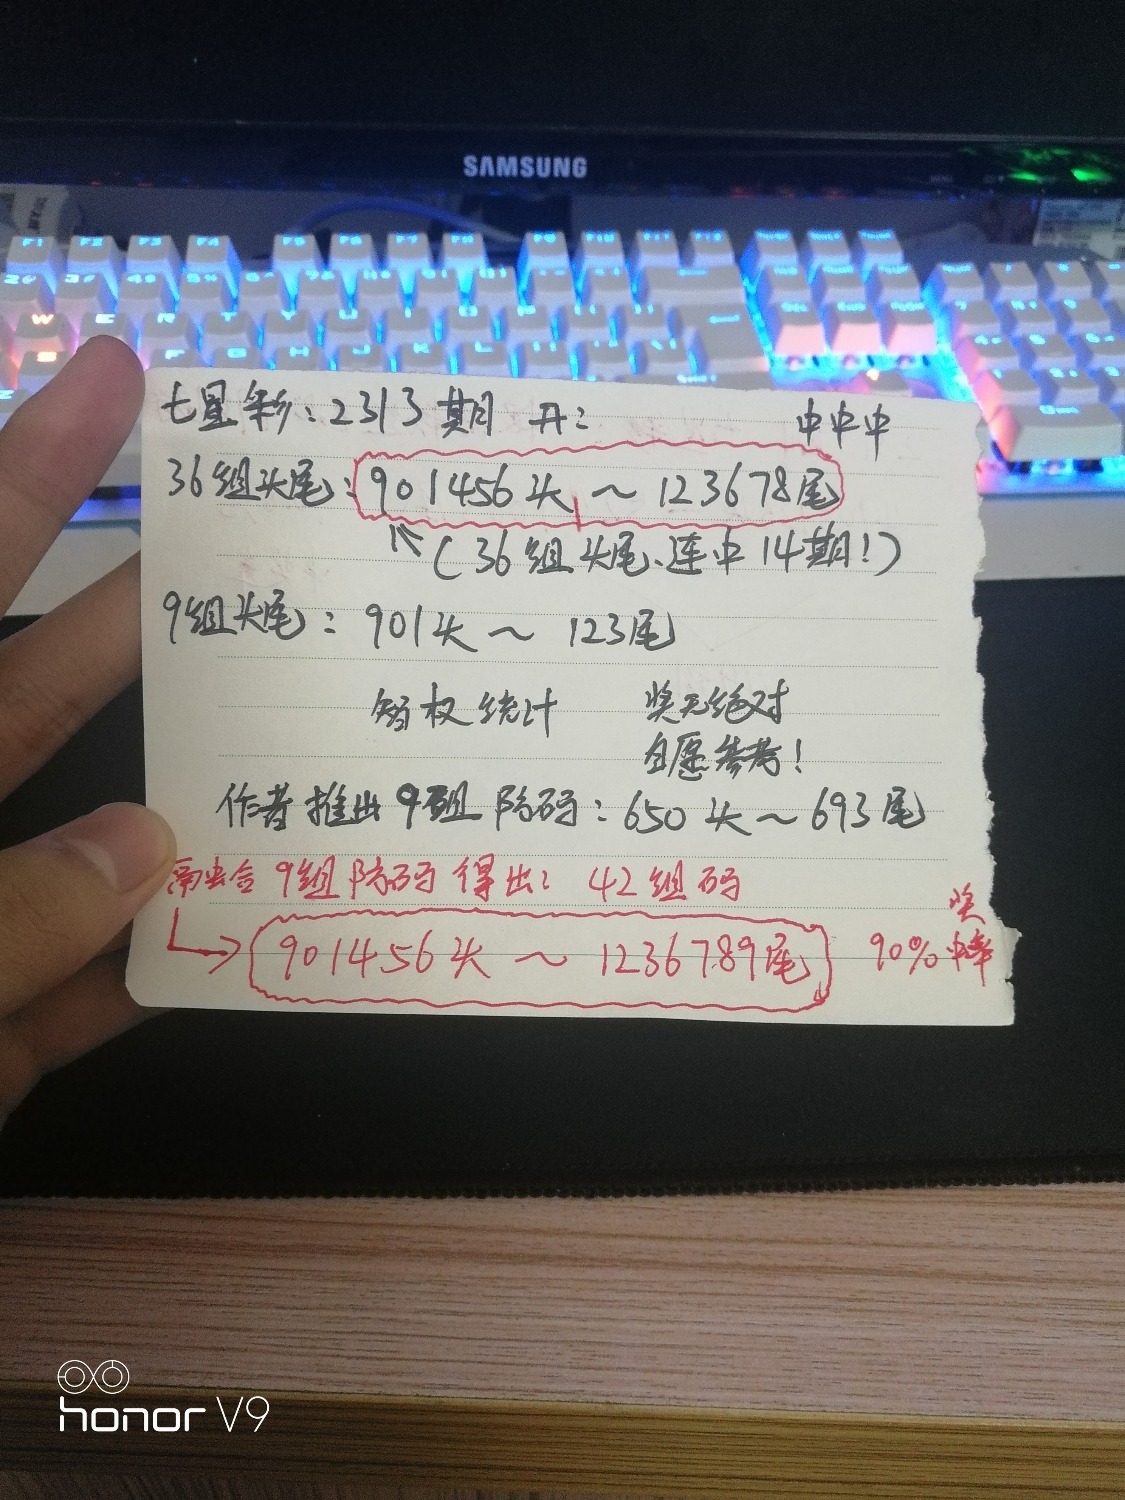 SAMSUNG
F1 F2 F3 F4 F5 F6 F7 F8 F9 F10 F11 F12
W E R T Y U I O P
F G H J K L
七星彩:2313期 开: 中中中
36组头尾:901456头~123678尾
(36组头尾、连中14期!)
9组头尾:901头~123尾
版权统计 奖无绝对
自愿参考!
作者推出9组防码:650头~693尾
9组防码得出: 42组码
901456头~1236789尾 90%中奖率
honor V9